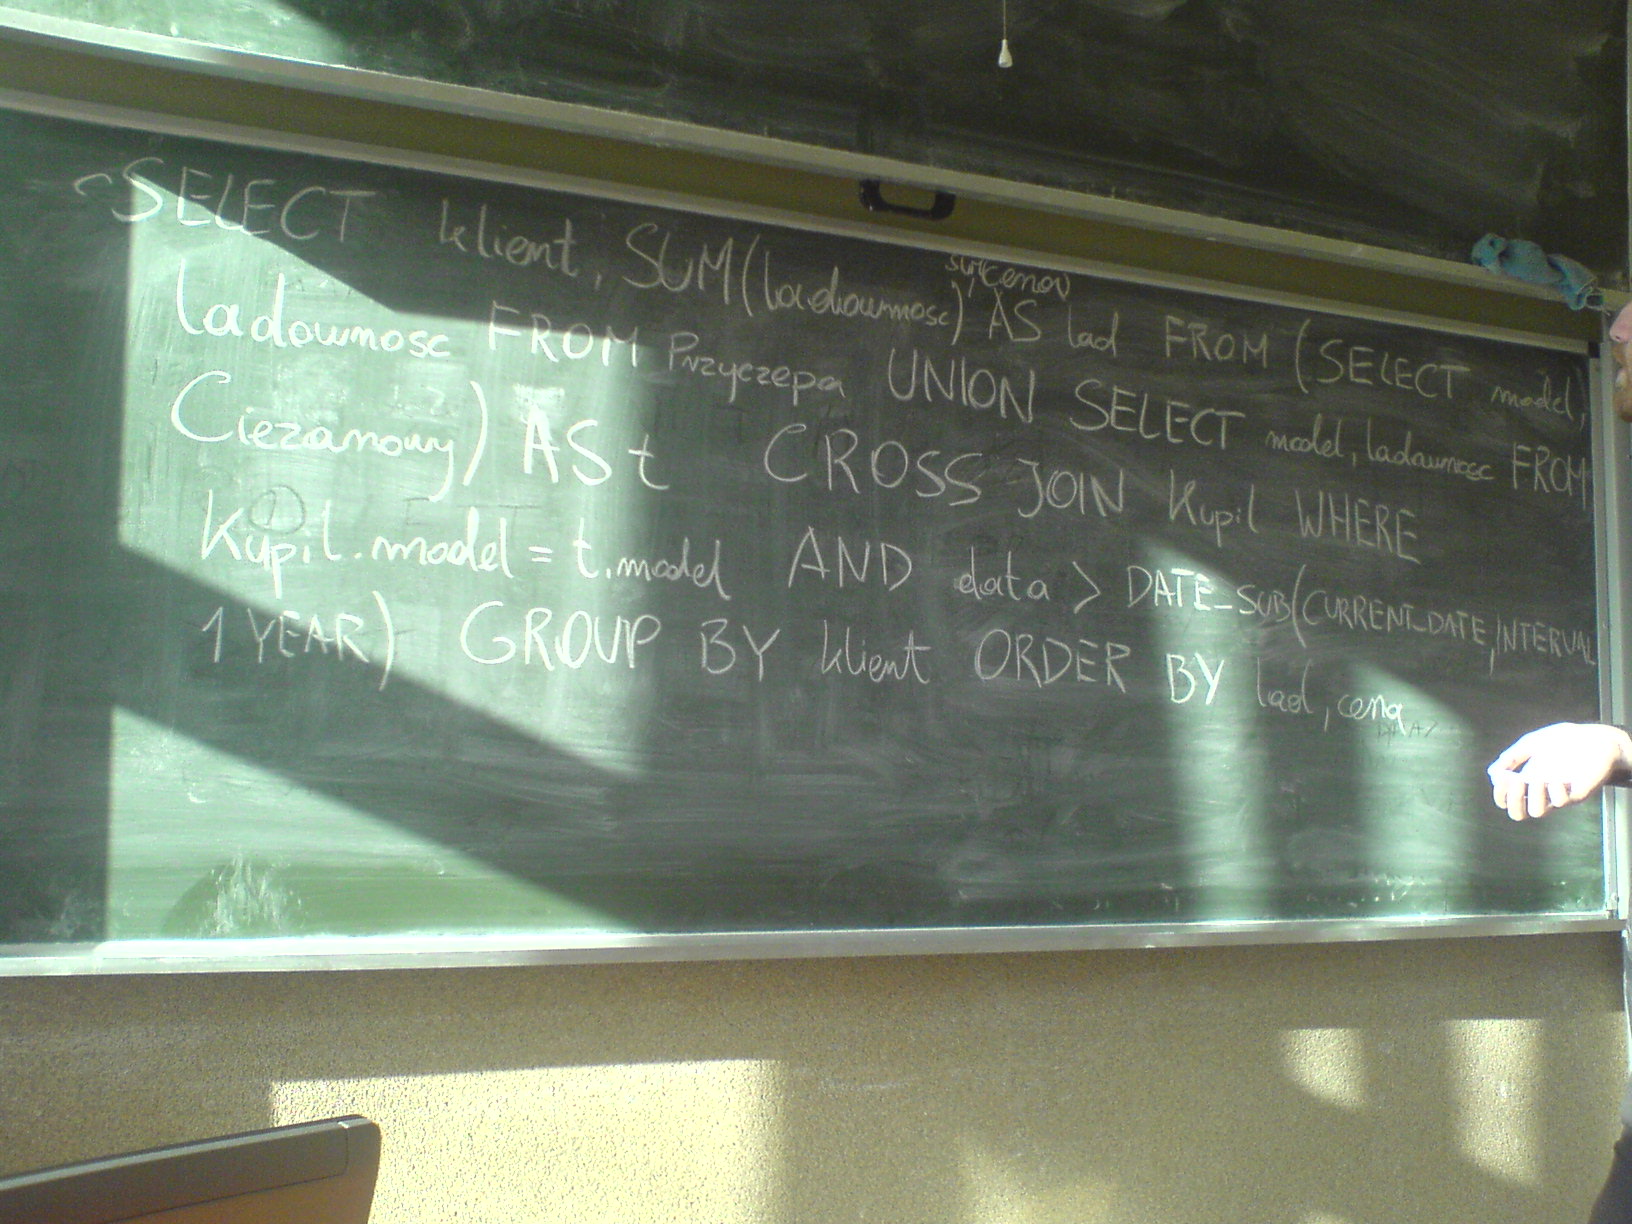 SELECT klient, SUM(ladownosc), SUM(cena) AS lad FROM (SELECT model,
ladownosc FROM Przyczepa UNION SELECT model, ladownosc FROM
Ciezarowy) AS t CROSS JOIN Kupil WHERE
Kupil.model = t.model AND data > DATE_SUB(CURRENT_DATE, INTERVAL
1 YEAR) GROUP BY klient ORDER BY lad, cena